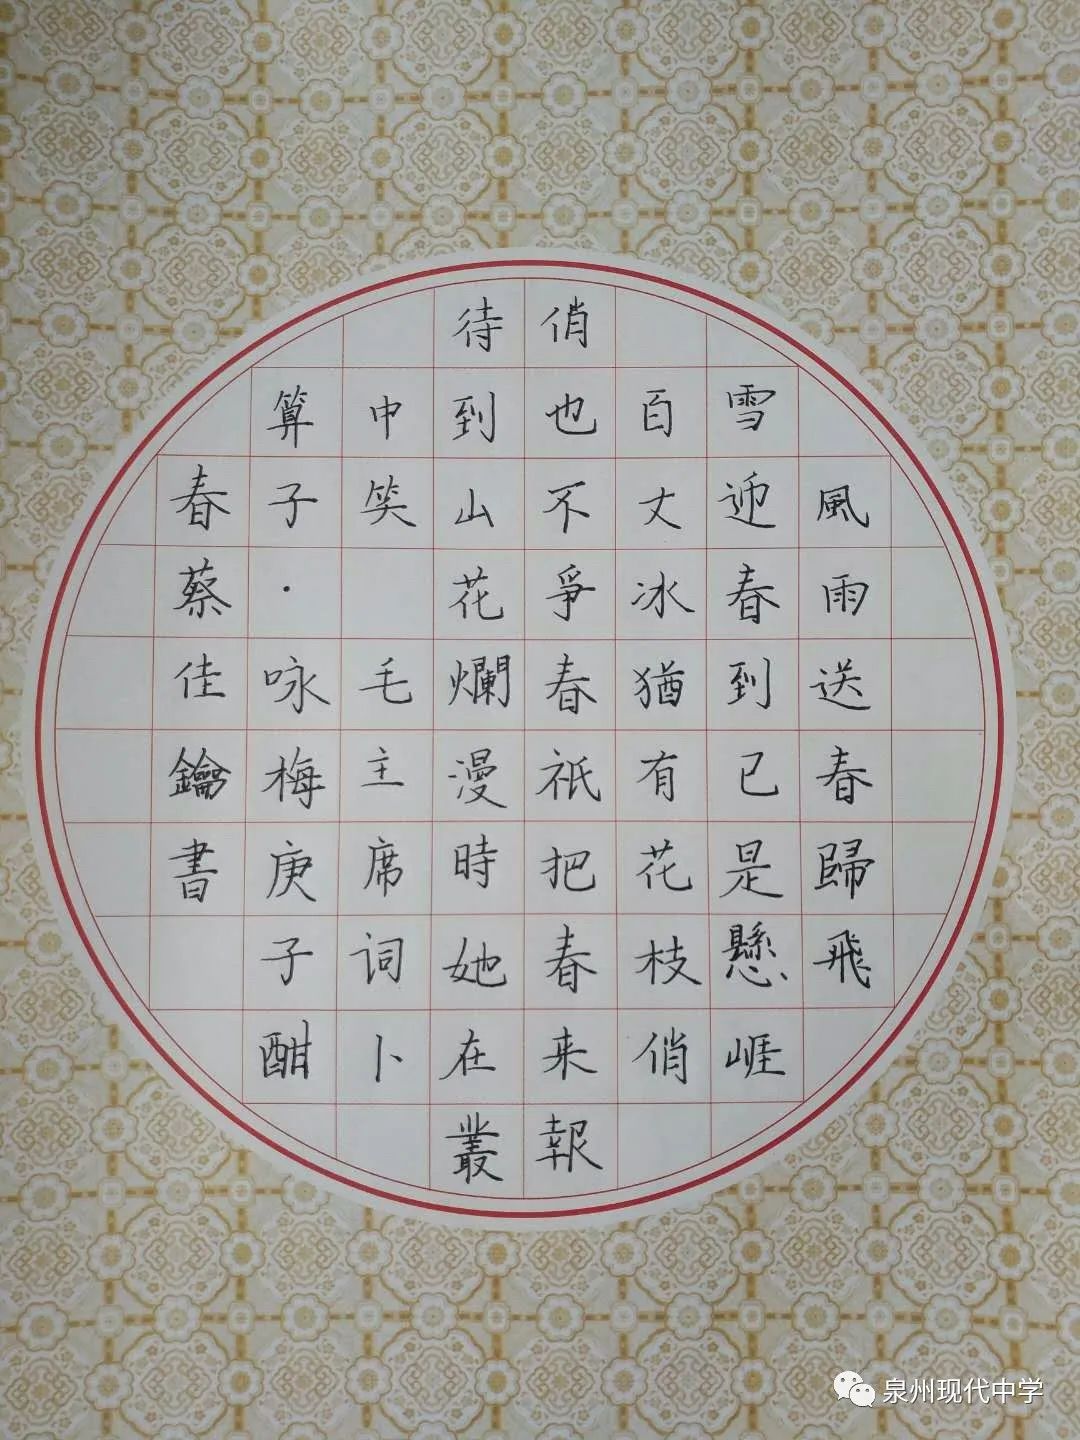 風雨送春歸飛
雪迎春到已是懸崕
百丈冰猶有花枝俏
俏也不爭春祇把春来報
待到山花爛漫時她在叢
中笑 毛主席词卜
算子·咏梅庚子酣
春蔡佳鑰書
泉州现代中学